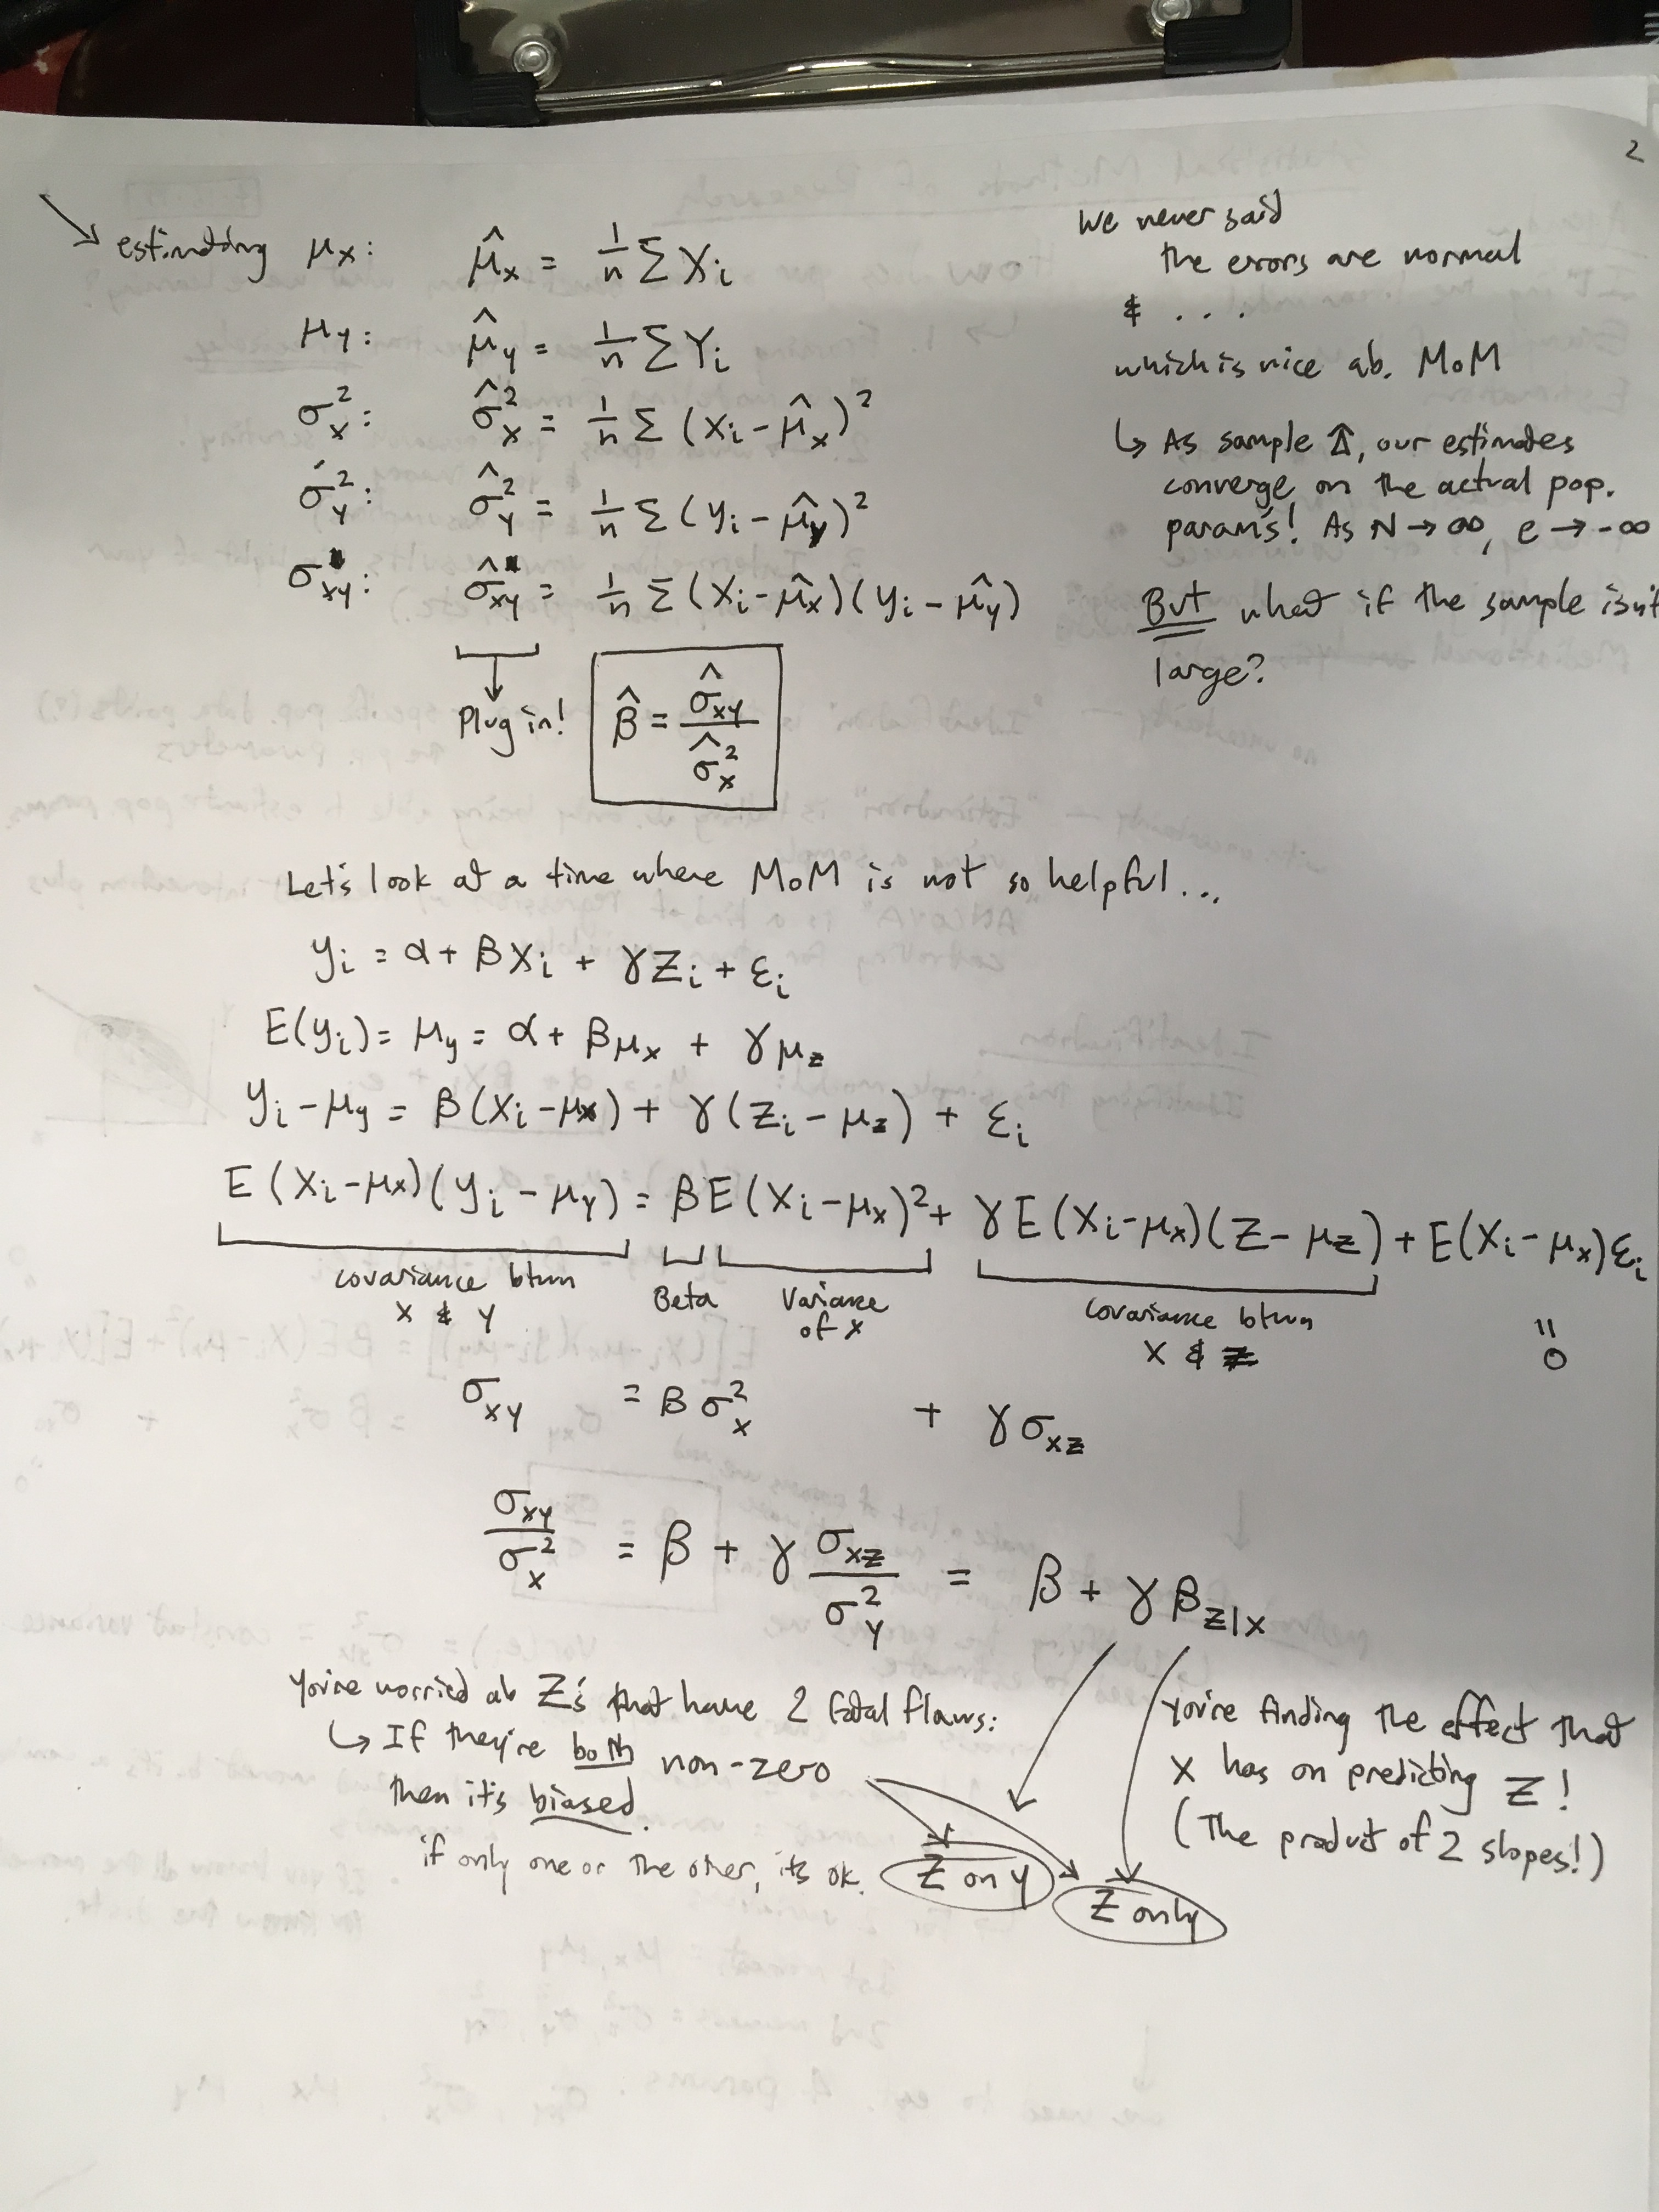 2
estimating μx: μ̂x = 1/n Σ Xi
μy: μ̂y = 1/n Σ Yi
σ²x: σ̂²x = 1/n Σ (xi - μ̂x)²
σ²y: σ̂²y = 1/n Σ (yi - μ̂y)²
σxy: σ̂xy = 1/n Σ (xi - μ̂x)(yi - μ̂y)
Plug in! β̂ = σ̂xy / σ̂²x
We never said
the errors are normal
& ...
which is nice ab. MoM
↳ As sample ⇑, our estimates
converge on the actual pop.
param's! As N → ∞, e → -∞
But what if the sample isn't
large?
Let's look at a time where MoM is not so helpful...
yi = α + βXi + γZi + εi
E(yi) = μy = α + βμx + γμz
yi - μy = β(Xi - μx) + γ(Zi - μz) + εi
E(Xi - μx)(yi - μy) = βE(Xi - μx)² + γE(Xi - μx)(Z - μz) + E(Xi - μx)εi
covariance btwn Beta Variance covariance btwn "
X & Y of X X & Z 0
σxy = βσ²x + γσxz
σxy / σ²x = β + γ σxz / σ²y = β + γβz|x
You're worried ab Z's that have 2 fatal flaws:
↳ If they're both non-zero
then it's biased.
if only one or the other, it's ok.
Z on y
Z only
You're finding the effect that
X has on predicting Z!
(The product of 2 slopes!)